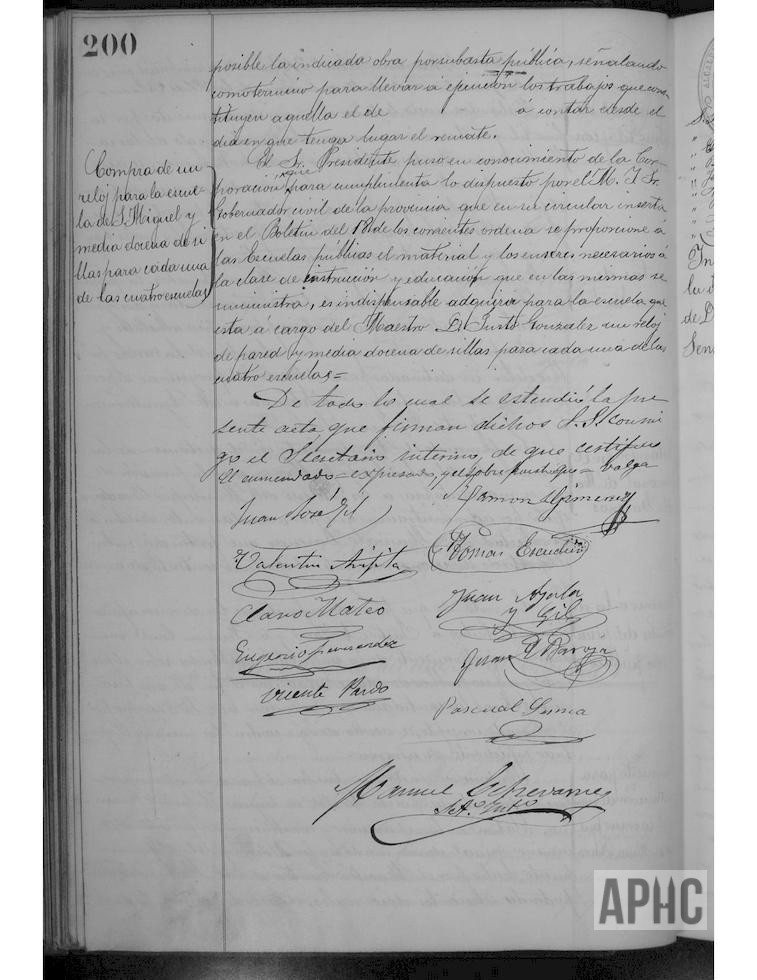 200
posible la indicada obra por subasta pública, señalando
como término para llevar á ejecucion los trabajos que cons-
tituyen aquella el de á contar desde el
dia en que tenga lugar el remate.
Compra de un
reloj para la escue-
la de S. Miguel y
media docena de si
llas para cada una
de las cuatro escuelas
El Sr. Presidente puso en conocimiento de la Cor-
que
poración para cumplimentar lo dispuesto por el M. I. Sr.
Gobernador civil de la provincia que en su circular inserta
en el Boletin del 18 de los corrientes ordena se proporcione a
las Escuelas públicas el material y los enseres necesarios á
la clase de instrucción y educación que en las mismas se
suministra, es indispensable adquirir para la escuela que
esta á cargo del Maestro D. Justo Gonzalez un reloj
de pared y media docena de sillas para cada una de las
cuatro escuelas=
De todo lo cual se estendió la pre
sente acta que firman dichos S.S. conmi
go el Secretario interino, de que certifico
El enmendado= espresado, y el sobre =que= valga
Juan José Gil
Ramon Gimenez
Valentin Aripita
Tomas Escudero
Claro Mateo
Juan Ayala
y Gil
Eugenio Fernandez
Juan Baroja
Vicente Pardo
Pascual
Manuel
Srio. Int.
In
la
de D
Sen
APHC